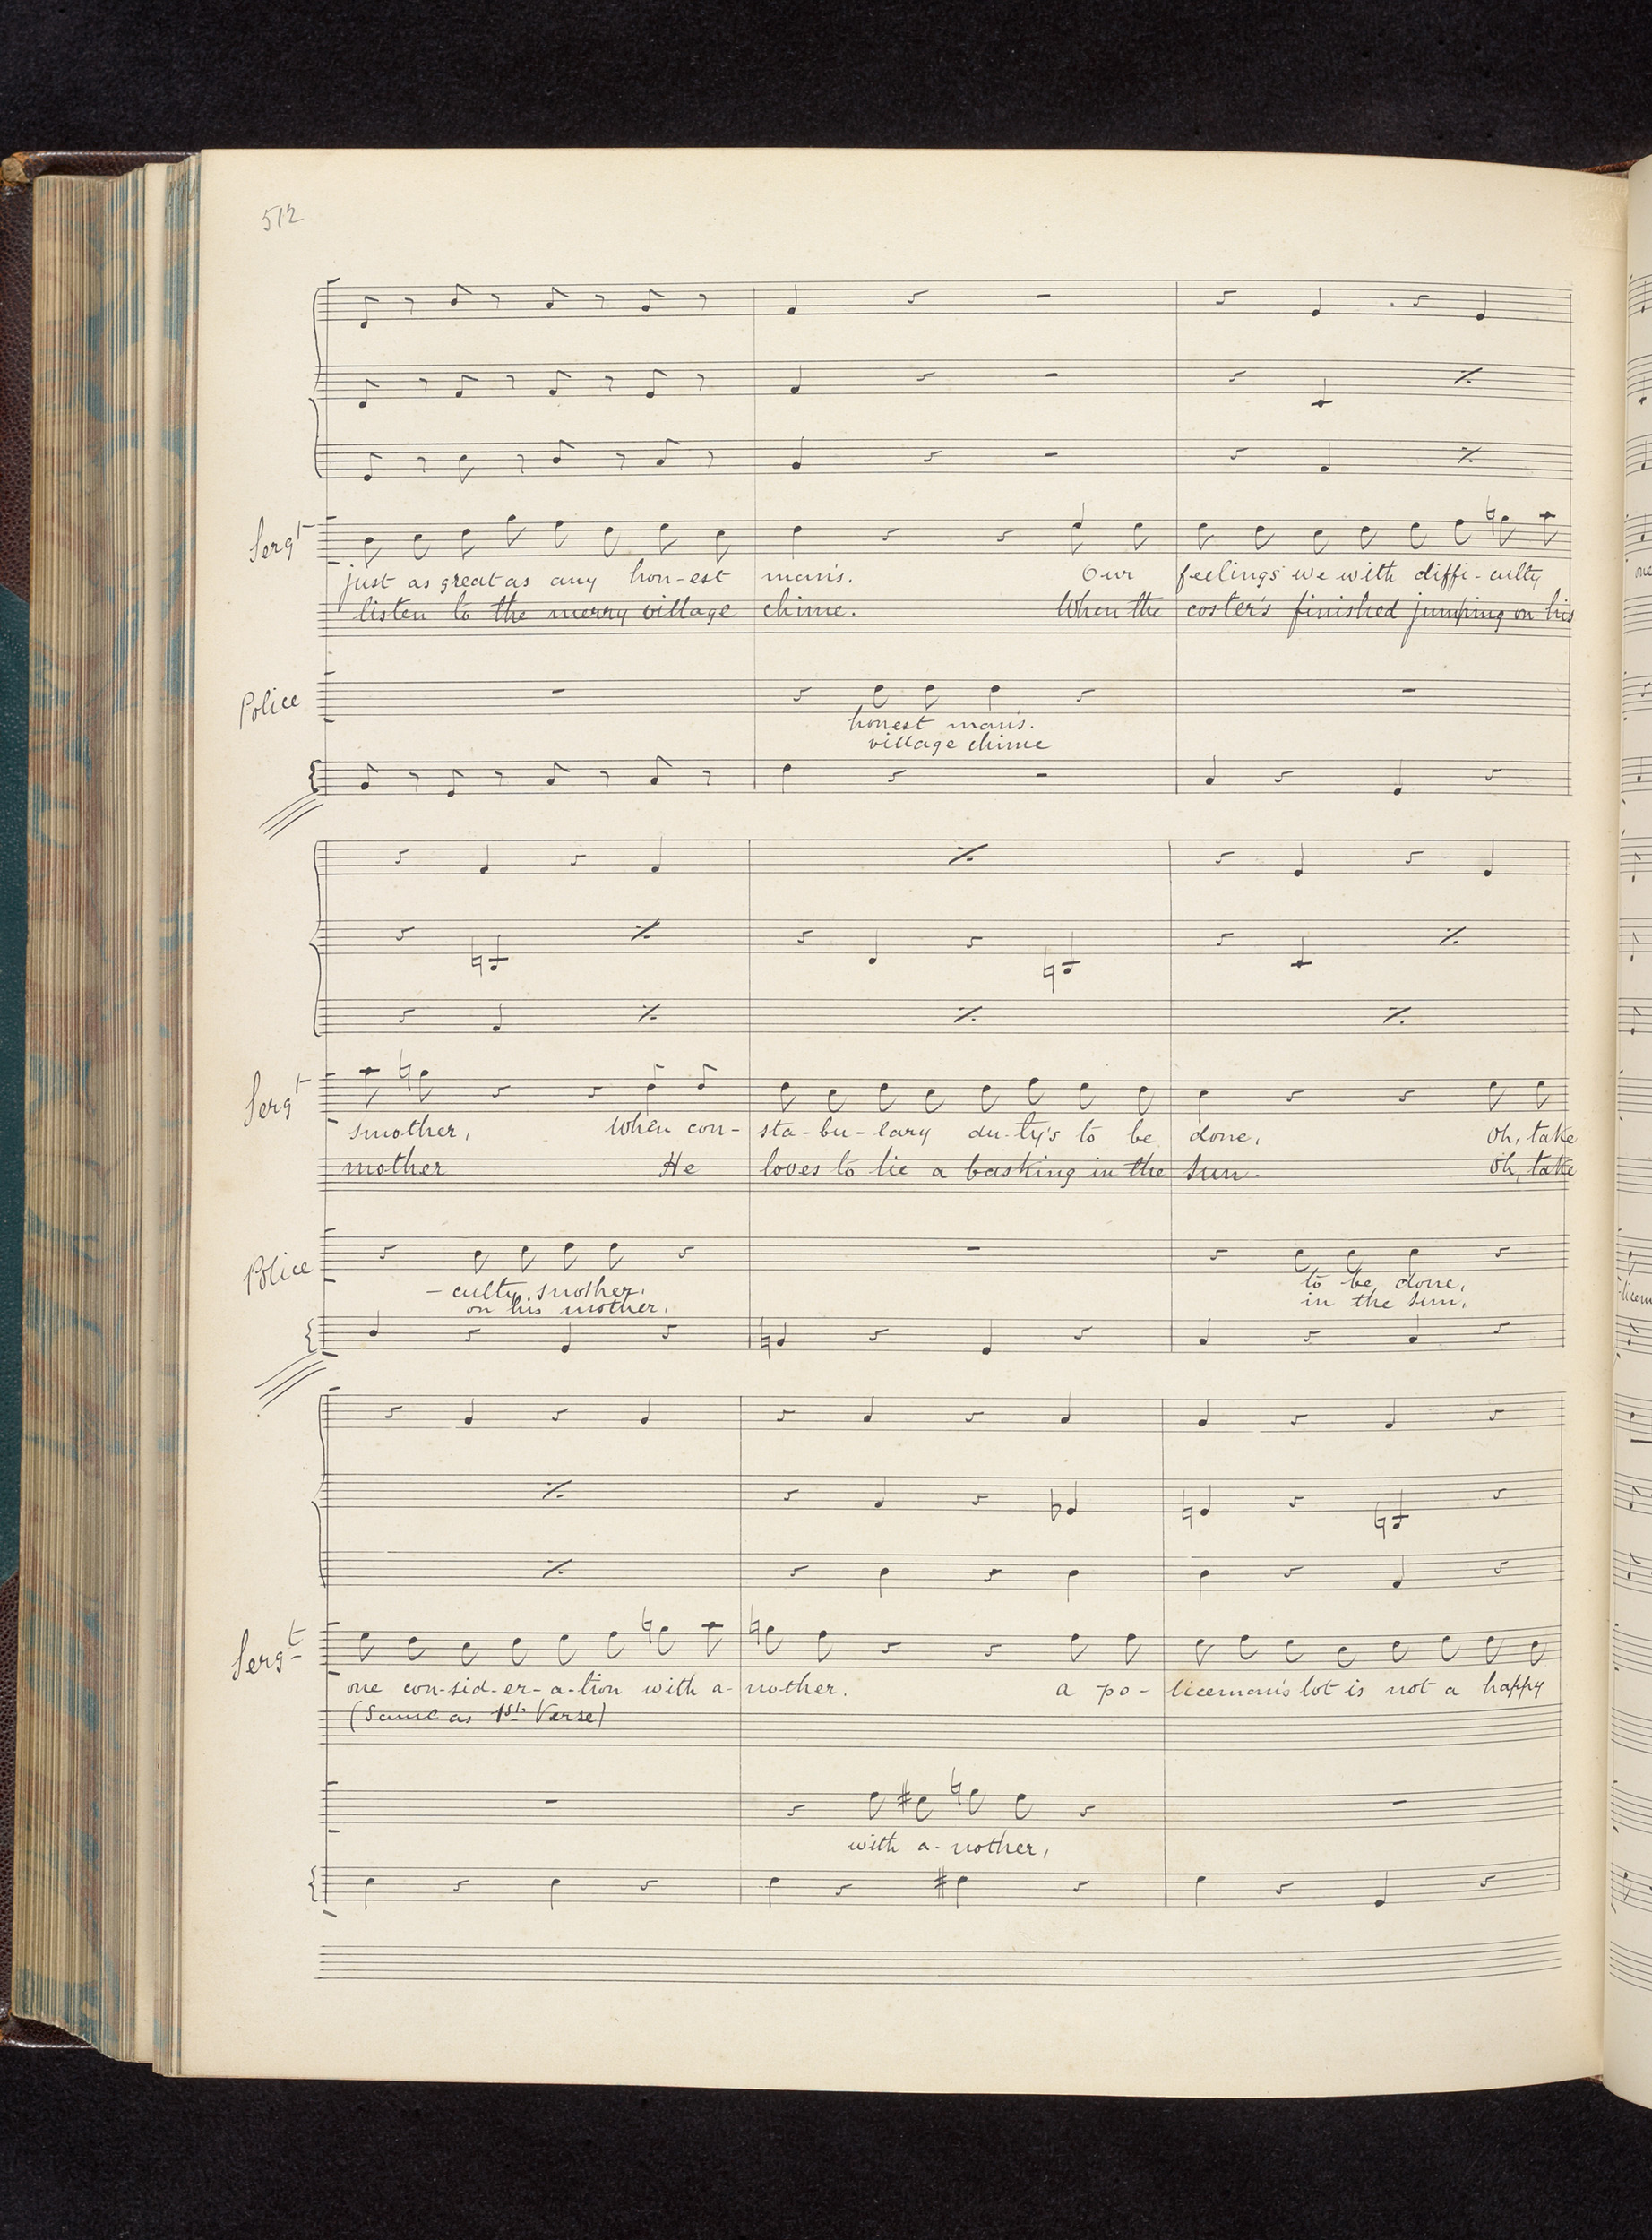 512
Sergt
just as great as any hon-est man's. Our feelings we with diffi-culty
listen to the merry village chime. When the coster's finished jumping on his
Police
honest man's.
village chime
Sergt
smother, When con-sta-bu-lary du-ty's to be done, Oh, take
mother He loves to lie a basking in the sun. Oh, take
Police
-culty smother. to be done,
on his mother. in the sun.
Sergt
one con-sid-er-a-tion with a-nother. a po-liceman's lot is not a happy
(Same as 1st Verse)
with a-nother,